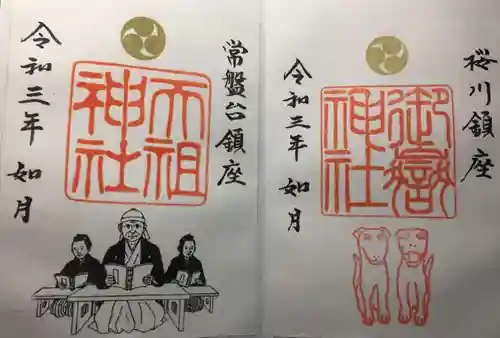 常盤台鎮座
天祖
神社
令和三年 如月
桜川鎮座
御嶽
神社
令和三年 如月